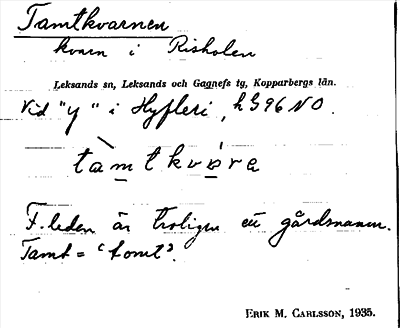 Tamtkvarnen
kvarn i Risholen
Leksands sn, Leksands och Gagnefs tg, Kopparbergs län.
Vid "y" i Hyfleri, h§96 NO.
tàmtkvɒ̀rɐ
F.leden är troligen ett gårdsnamn.
Tamt = 'tomt'.
ERIK M. CARLSSON, 1935.